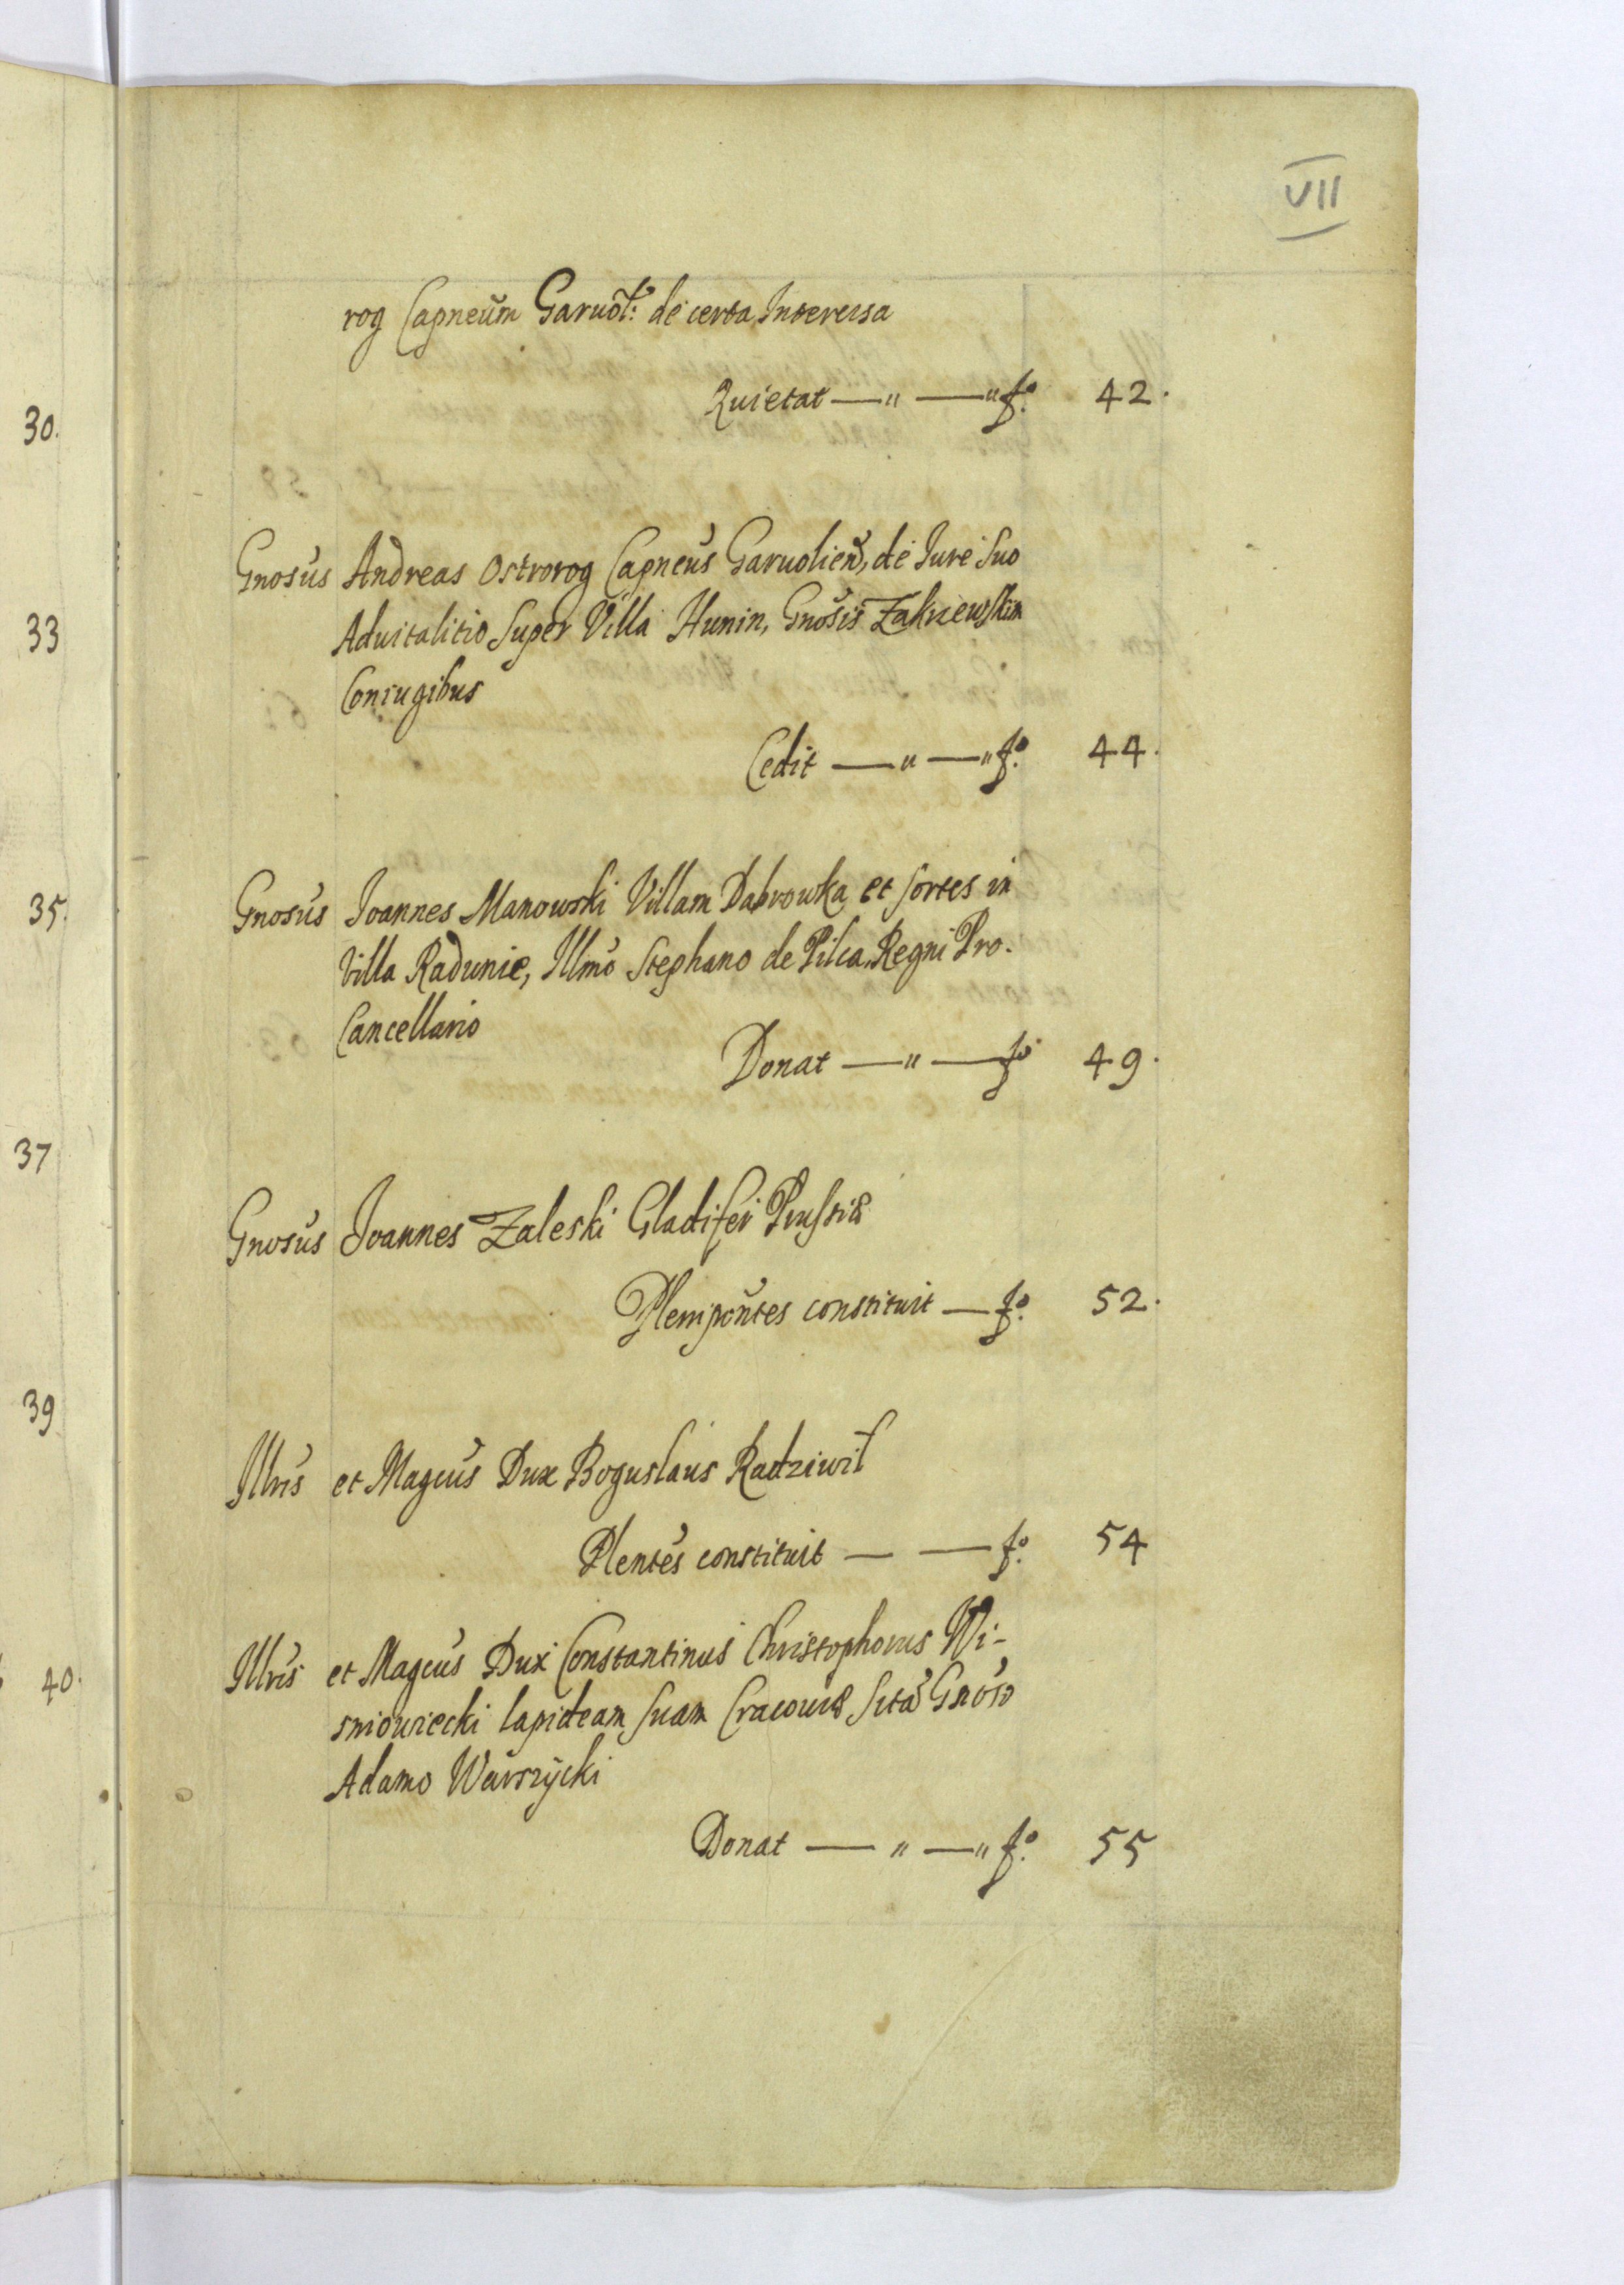 VII
rog Capneum Garuol: de certa Interersa
Quietat —"—" fo. 42.
Gnosus Andreas Ostrorog Capneus Garuolien, de Iure Suo
Aduitalitio Super Villa Hunin, Gnosis Zakrzewskim
Coniugibus
Cedit —"—" fo. 44.
Gnosus Joannes Manowski Villam Dabrowka et sortes in
Villa Radunie, Illmo Stephano de Pilca, Regni Pro-
Cancellario
Donat —"— fo 49.
Gnosus Joannes Zaleski Gladifer Prussiæ
Plenipontes constituit — fo. 52.
Illris et Magcus Dux Boguslaus Radziwił
Plentes constituit — — fo. 54
Illris et Magcus Dux Constantinus Christophorus Wi-
sniowiecki lapideam suam Cracouiæ Sita Gnoso
Adamo Warszÿcki
Donat —"—" fo. 55
30.
33
35.
37
39
40.